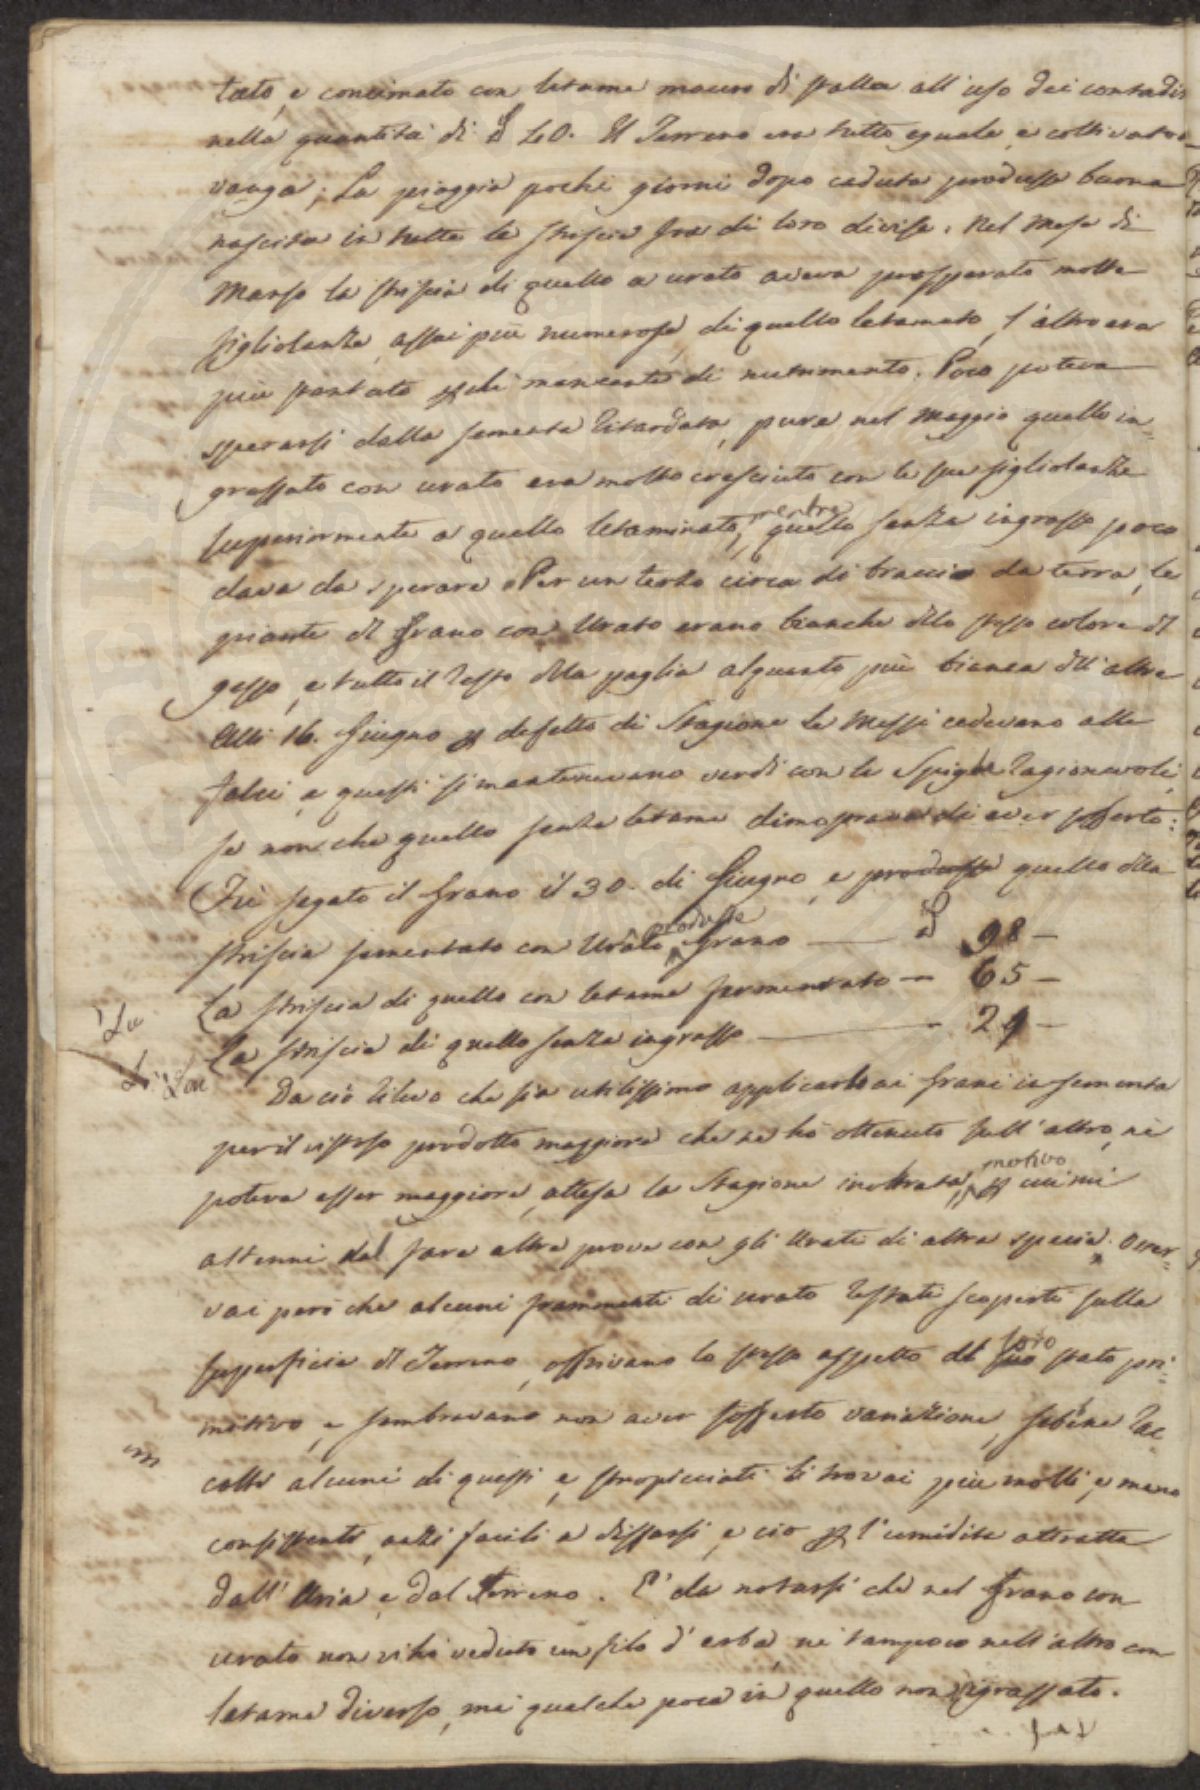 tato, e concimato con letame macero di stalla all'uso dei contadi
nella quantità di ℔ 40. Il Terreno era tutto eguale, e coltivato a
vanga; La pioggia pochi giorni dopo caduta produsse buona
nascita in tutte le striscie fra di loro divise. Nel Mese di
Marzo la striscia di quello a urato aveva prosperato molte
figliolanze assai più numerose, di quello letamato, l'altro era
più stentato perchè mancante di nutrimento. Poco poteva
sperarsi dalla sementa ritardata, pure nel Maggio quello in=
grassato con urato era molto cresciuto con le sue figliolanze
superiormente a quello letaminato, mentre quello senza ingrasso poco
dava da sperare. Per un terzo circa di braccio da terra, le
piante del Grano con Urato erano bianche dello stesso colore del
gesso, e tutto il resto della paglia alquanto più bianca dell'altre
Alli 16. Giugno per difetto di Stagione le Messi cadevano alle
falci, e questi si mantenevano verdi con le Spighe ragionevoli,
se non che quello senza letame dimostrava di aver sofferto:
Fù segato il Grano il 30. di Giugno, e produsse quello della
striscia sementato con Urato produsse Grano — ℔ 98 —
La striscia di quello con letame fermentato — 65 —
La striscia di quello senza ingrasso — 29 —
Da ciò rilevo che sia utilissimo applicarlo ai Grani in sementa
per il vistoso prodotto maggiore che ne hò ottenuto sull'altro, nè
poteva esser maggiore, attesa la Stagione inoltrata, motivo per cui mi
astenni dal fare altre prove con gli Urati di altra specie. Osser=
vai però che alcuni frammenti di urato restati scoperti sulla
superficie del Terreno, offrivano lo stesso aspetto del suo loro stato pri=
mitivo, e sembravano non aver sofferto variazione, sebene rac=
colti alcuni di questi, e stropicciati li trovai più molli, e meno
consistenti, anzi facili a disfarsi, e ciò per l'umidità attratta
dall'Aria, e dal Terreno. E' da notarsi che nel Grano con
urato non vi hò veduto un filo d'erba, nè tampoco nell'altro con
letame diverso, mà qualche poca in quello non ingrassato.